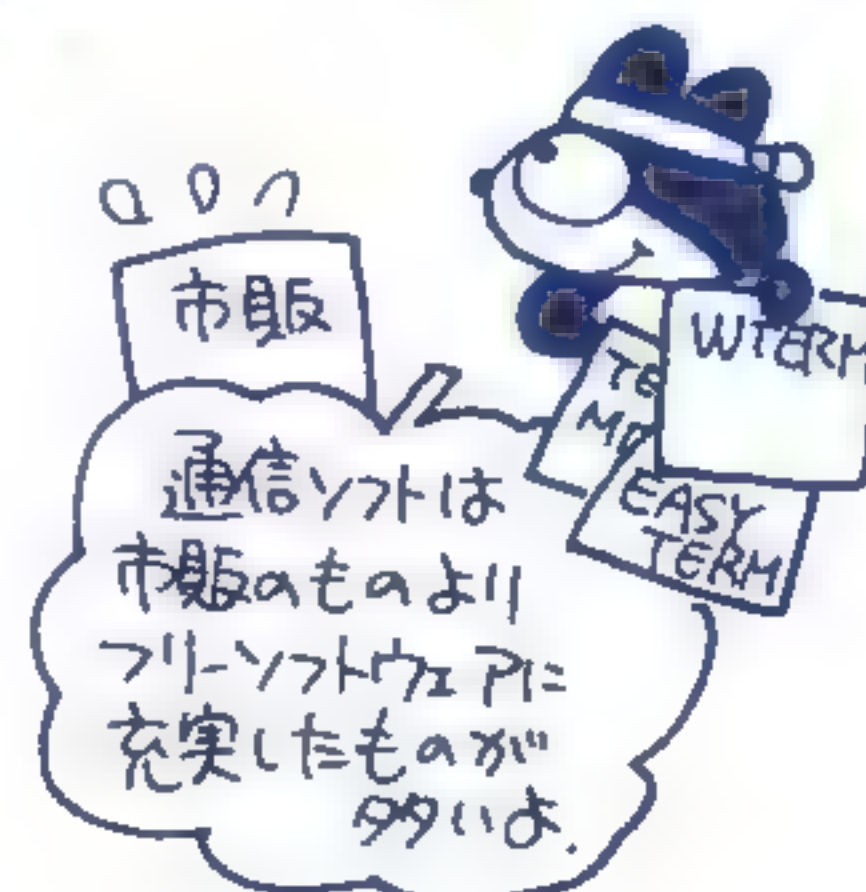 市販
WTERM
TE
EASY
TERM
通信ソフトは
市販のものより
フリーソフトウェアに
充実したものが
多いよ.